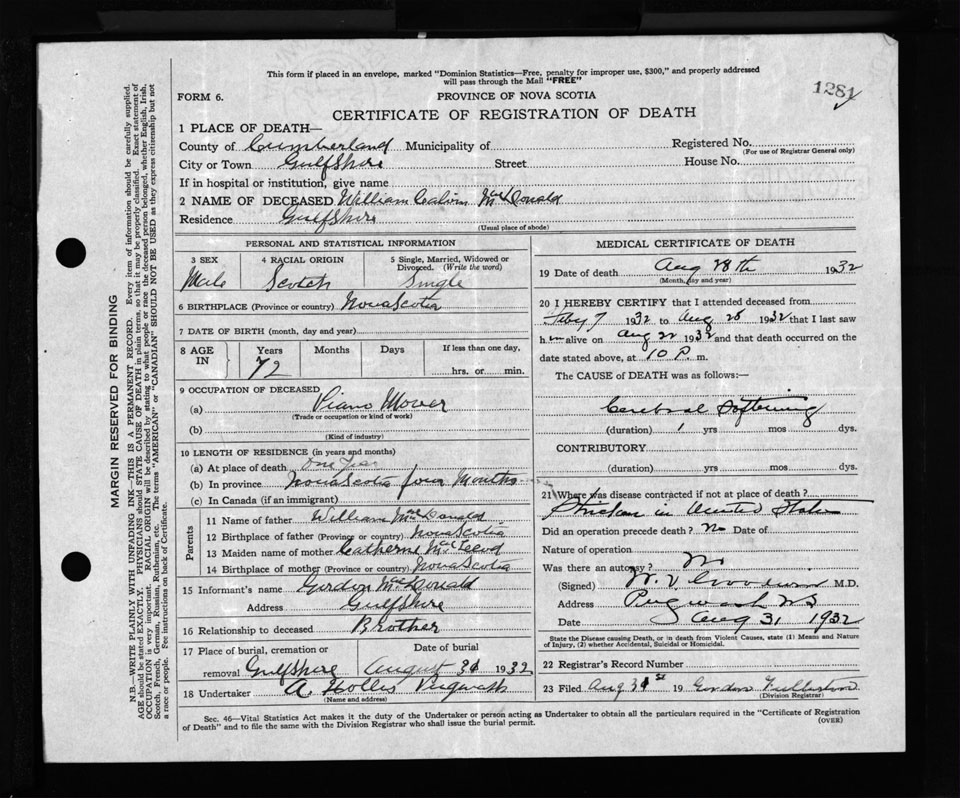 This form if placed in an envelope, marked "Dominion Statistics—Free, penalty for improper use, $300," and properly addressed
will pass through the Mail "FREE"
1281
FORM 6.
PROVINCE OF NOVA SCOTIA
CERTIFICATE OF REGISTRATION OF DEATH
1 PLACE OF DEATH—
County of Cumberland Municipality of Registered No.
(For use of Registrar General only)
City or Town Gulfshore Street House No.
If in hospital or institution, give name
2 NAME OF DECEASED William Calvin McDonald
Residence Gulfshore
(Usual place of abode)
PERSONAL AND STATISTICAL INFORMATION
3 SEX 4 RACIAL ORIGIN 5 Single, Married, Widowed or
Divorced. (Write the word)
Male Scotch Single
6 BIRTHPLACE (Province or country) Nova Scotia
7 DATE OF BIRTH (month, day and year)
8 AGE IN Years Months Days If less than one day,
72 hrs. or min.
9 OCCUPATION OF DECEASED
(a) Piano Mover
(Trade or occupation or kind of work)
(b)
(Kind of industry)
10 LENGTH OF RESIDENCE (in years and months)
(a) At place of death One Year
(b) In province Nova Scotia four Months
(c) In Canada (if an immigrant)
Parents
11 Name of father William McDonald
12 Birthplace of father (Province or country) Nova Scotia
13 Maiden name of mother Catherine McLeod
14 Birthplace of mother (Province or country) Nova Scotia
15 Informant's name Gordon McDonald
Address Gulfshore
16 Relationship to deceased Brother
17 Place of burial, cremation or Date of burial
removal Gulfshore August 31 1932
18 Undertaker A Hollis Pugwash
(Name and address)
MEDICAL CERTIFICATE OF DEATH
19 Date of death Aug 28th 1932
(Month, day and year)
20 I HEREBY CERTIFY that I attended deceased from
Feby 7 1932 to Aug 28 1932 that I last saw
him alive on Aug 22 1932 and that death occurred on the
date stated above, at 10 P. m.
The CAUSE of DEATH was as follows:—
Cerebral Softening
(duration) 1 yrs mos dys.
CONTRIBUTORY
(duration) yrs mos dys.
21 Where was disease contracted if not at place of death?
Stricken in United States
Did an operation precede death? No Date of
Nature of operation
Was there an autopsy? No
(Signed) W. V. Goodwin M.D.
Address Pugwash NS
Date Aug 31 1932
State the Disease causing Death, or in death from Violent Causes, state (1) Means and Nature
of Injury, (2) whether Accidental, Suicidal or Homicidal.
22 Registrar's Record Number
23 Filed Aug 31st 19 Gordon
(Division Registrar)
Sec. 46—Vital Statistics Act makes it the duty of the Undertaker or person acting as Undertaker to obtain all the particulars required in the "Certificate of Registration
of Death" and to file the same with the Division Registrar who shall issue the burial permit.
(OVER)
MARGIN RESERVED FOR BINDING
N.B.—WRITE PLAINLY WITH UNFADING INK—THIS IS A PERMANENT RECORD. Every item of information should be carefully supplied.
AGE should be stated EXACTLY. PHYSICIANS should STATE CAUSE OF DEATH in plain terms, so that it may be properly classified. Exact statement of
OCCUPATION is very important. RACIAL ORIGIN will be described by stating to what people or race the deceased person belonged, whether English, Irish,
Scotch, French, German, Russian, Ruthenian, etc. The terms "AMERICAN" or "CANADIAN" SHOULD NOT BE USED as they express citizenship but not
a race or people. Fee instructions on back of Certificate.